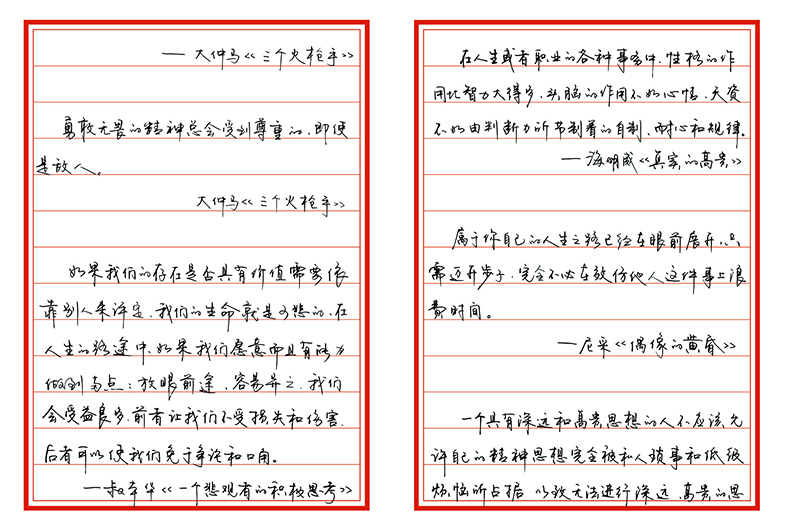 ——大仲马《三个火枪手》
勇敢无畏的精神总会受到尊重的，即便
是敌人。
大仲马《三个火枪手》
如果我们的存在是否具有价值需要依
靠别人来评定，我们的生命就是可悲的，在
人生的路途中，如果我们愿意而且有能力
做到两点：放眼前途，容易弃之，我们
会受益良多，前者让我们不受损失和伤害，
后者可以使我们免于争论和口角。
——叔本华《一个悲观者的积极思考》
在人生或者职业的各种事务中，性格的作
用比智力大得多，头脑的作用不如心情，天资
不如由判断力所节制着的自制、耐心和规律。
——海明威《真实的高贵》
属于你自己的人生之路已经在眼前展开，只
需迈开步子，完全不必在效仿他人这件事上浪
费时间。
——尼采《偶像的黄昏》
一个具有深远和高贵思想的人不应该允
许自己的精神思想完全被私人琐事和低级
烦恼所占据，以致无法进行深远、高贵的思